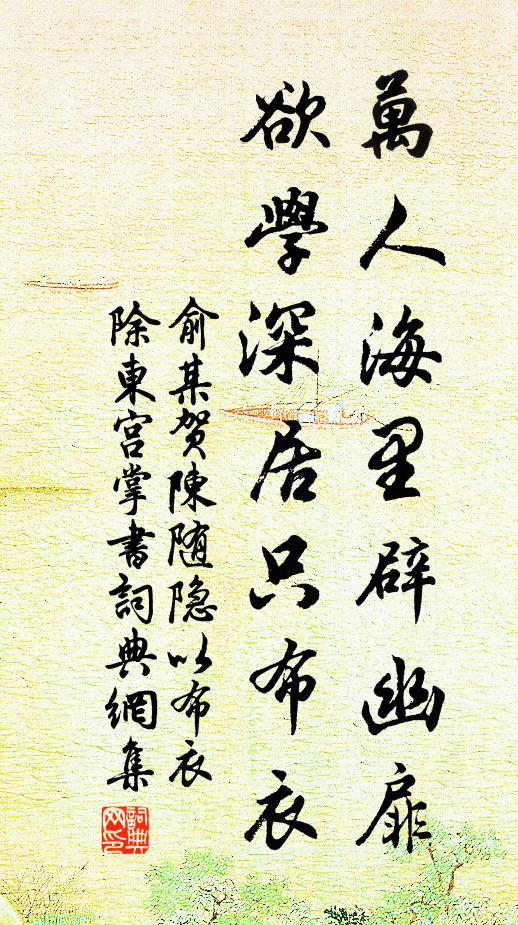 萬人海里辟幽扉
欲學深居只布衣
俞某贺陳随隐以布衣
除東宫掌書詞典網集
詞典网印